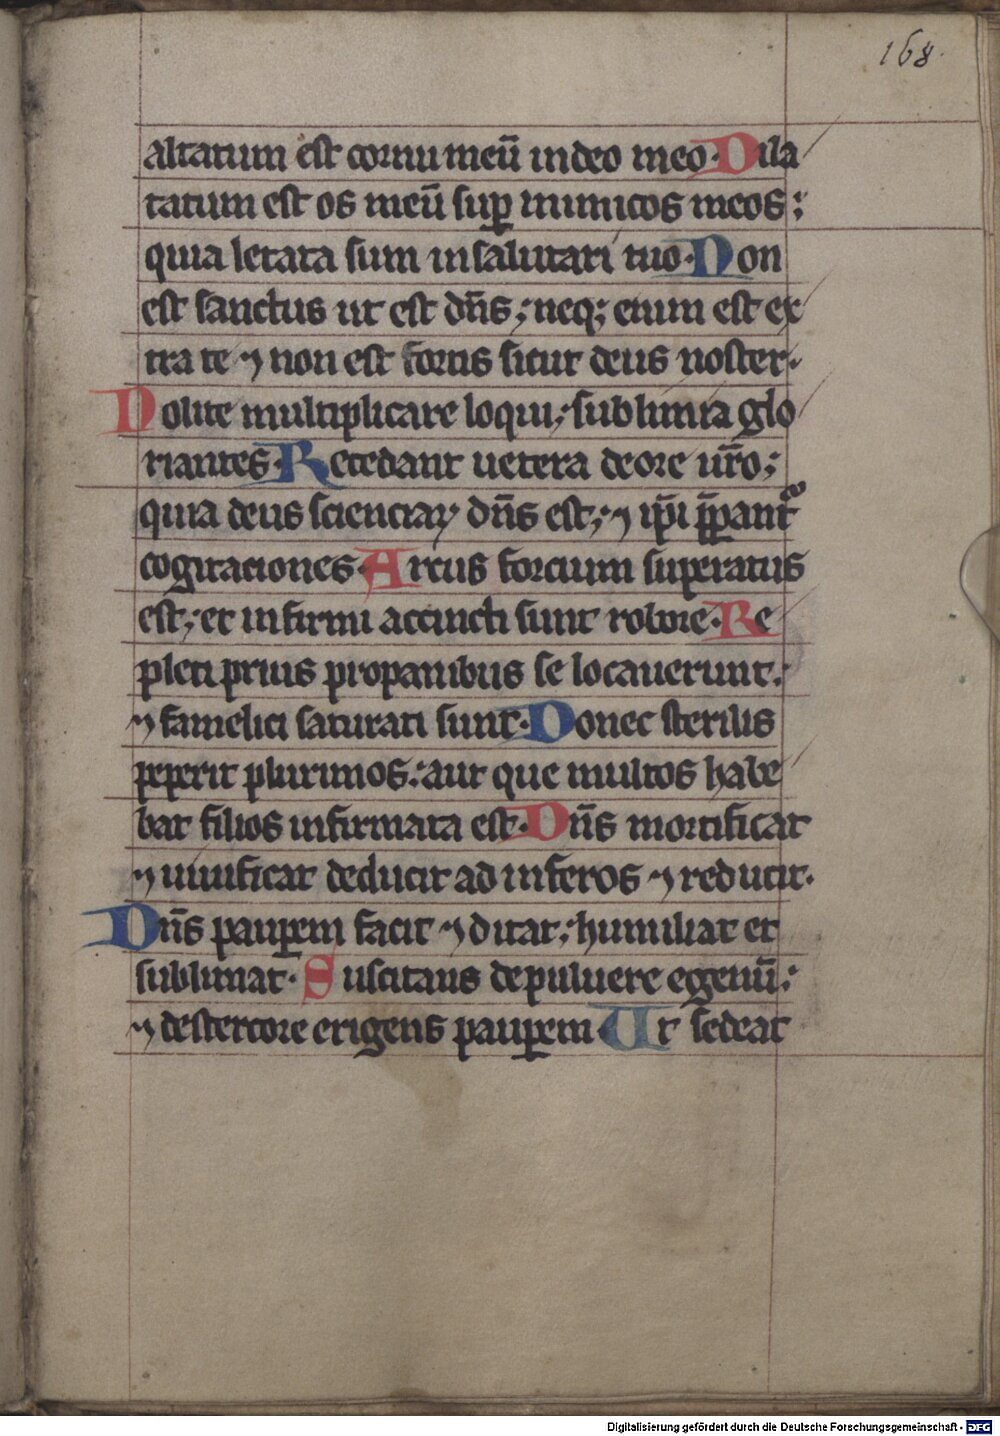 168.
altatum est cornu meū in deo meo. Dila
tatum est os meū suꝑ inimicos meos;
quia letata sum in salutari tuo. Non
est sanctus ut est dn̄s; neqꝫ enim est ex
tra te ⁊ non est fortis sicut deus noster.
Nolite multiplicare loqui; sublimia glo
riantes. Recedant uetera de ore ur̄o;
quia deus scienciaꝝ dn̄s est; ⁊ ip̄i p̄parant᷑
cogitaciones. Arcus forcium superatus
est; et infirmi accincti sunt robore. Re
pleti prius pro panibus se locauerunt;
⁊ famelici saturati sunt. Donec sterilis
peperit plurimos: aut que multos habe
bat filios infirmata est. Dn̄s mortificat
⁊ uiuificat deducit ad inferos ⁊ reducit.
Dn̄s pauꝑem facit ⁊ ditat; humiliat et
sublimat. Suscitans de puluere egenū;
⁊ de stercore erigens pauꝑem Ut sedeat
Digitalisierung gefördert durch die Deutsche Forschungsgemeinschaft - DFG